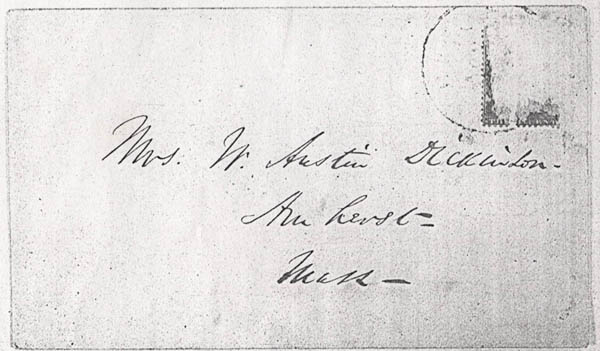 Mrs. W. Austin Dickinson-
Amherst-
Mass-